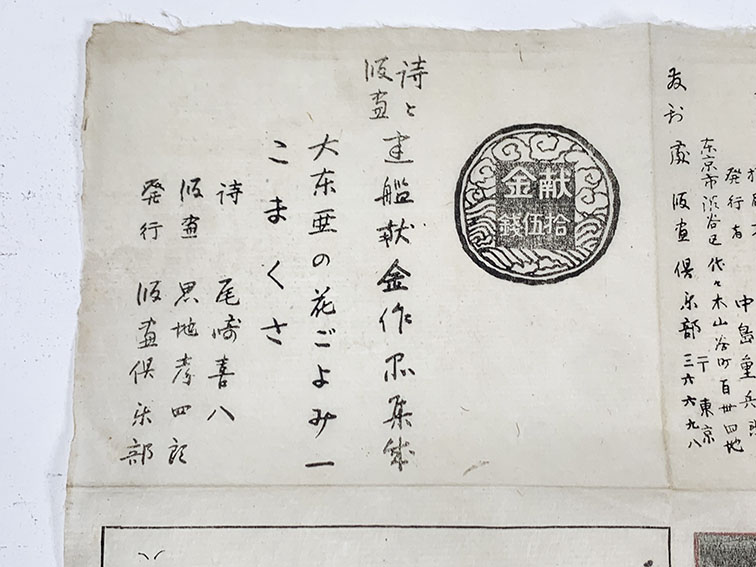 発行者 中島重兵
东京市渋谷区代々木山谷町百卅四地
発刊處 版画倶楽部 東京三六六九八
献金
拾伍錢
詩と版画 建艦献金作品集
大东亜の花ごよみ一
こまくさ
詩 尾崎喜八
版画 恩地孝四郎
発行 版画倶楽部